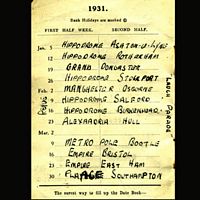 1931.
Bank Holidays are marked
FIRST HALF WEEK. SECOND HALF.
Jan. 5 HIPPODROME ASHTON-U-LYNE
12 HIPPODROME ROTHERHAM
19 GRAND DONCASTER
26 HIPPODROME STOCKPORT
Feb. 2 MANCHESTER OSBORNE
9 HIPPODROME SALFORD
16 HIPPODROME BIRKENHEAD
23 ALEXANDRA HULL
Mar. 2
9 METROPOLE BOOTLE
16 EMPIRE BRISTOL
23 EMPIRE EAST HAM
30 PALACE SOUTHAMPTON
LAUGH PARADE
The surest way to fill up the Date Book—